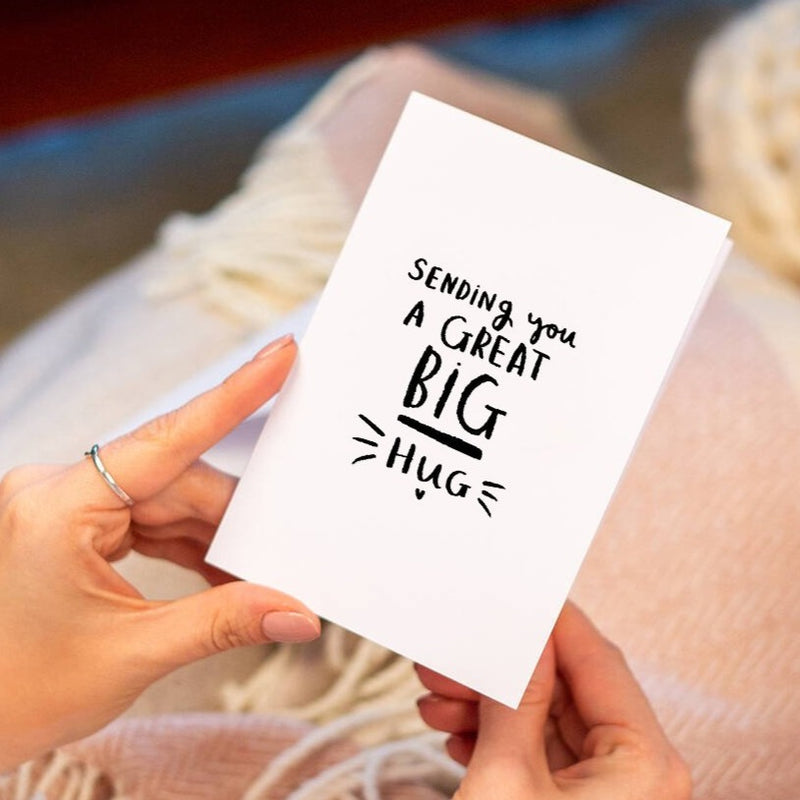 SENDiNG you
A GREAT
BiG
HUG